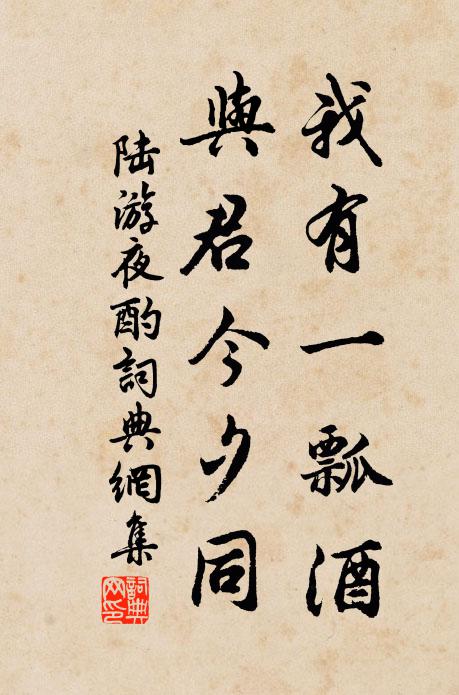 我有一瓢酒
與君今夕同
陸游夜酌詞典網集
詞典網印